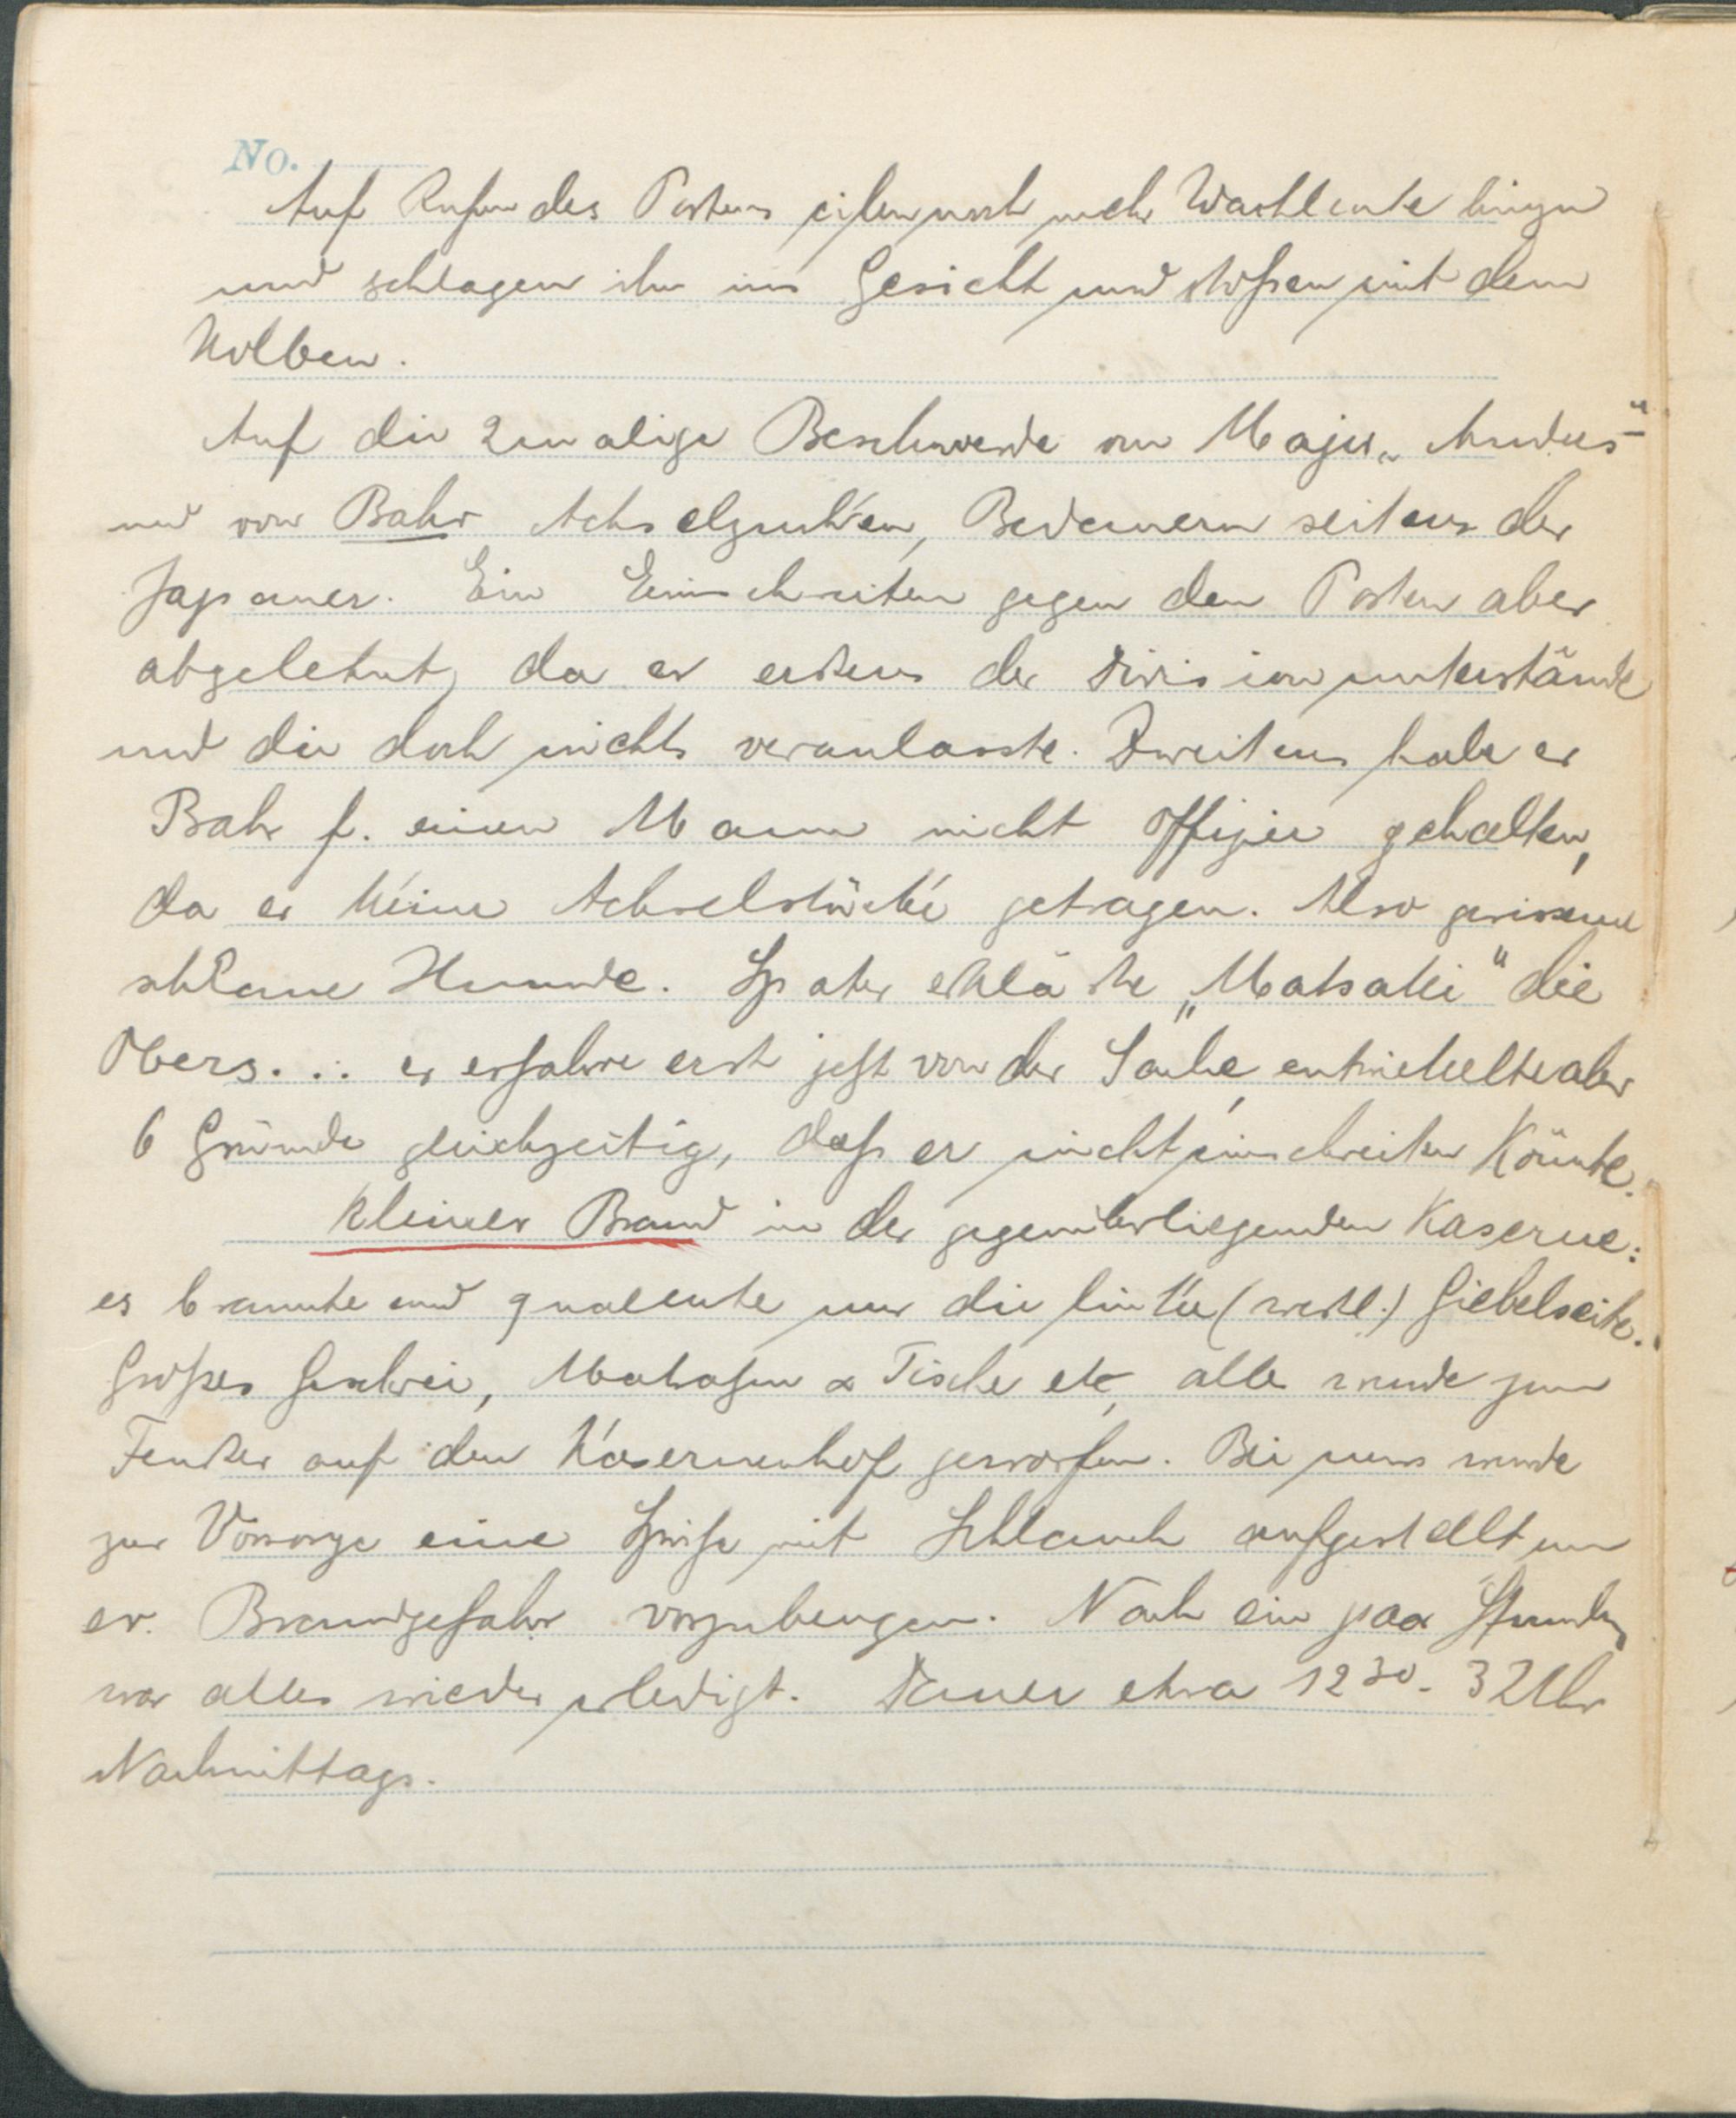 No.
Auf Rufen des Postens eilen noch mehr Wachleute hinzu
und schlagen ihm ins Gesicht und stoßen mit dem
Kolben.
Auf die 2malige Beschwerde von Major „Anders“
und von Bahr Achselzucken, Bedauern seitens der
Japaner. Ein Einschreiten gegen den Posten aber
abgelehnt, da er erstens der Division unterstände
und die doch nichts veranlasste. Zweitens habe er
Bahr f. einen Mann nicht Offizier gehalten,
da er keine Achselstücke getragen. Also gerissene
schlaue Hunde. Später erklärte „Matsaki“ die
Obers... er erfahre erst jetzt von der Sache, entwickelte aber
6 Gründe gleichzeitig, daß er nicht einschreiten könnte.
Kleiner Brand in der gegenüberliegenden Kaserne:
es brannte und qualmte nur die linke (westl.) Giebelseite.
Großes Geschrei, Matratzen & Tische etc, alles wurde zum
Fenster auf den Kasernenhof geworfen. Bei uns wurde
zur Vorsorge eine Spritze mit Schlauch aufgestellt um
ev. Brandgefahr vorzubeugen. Nach ein paar Stunden
war alles wieder erledigt. Dauer etwa 12³⁰ - 3 Uhr
Nachmittags.